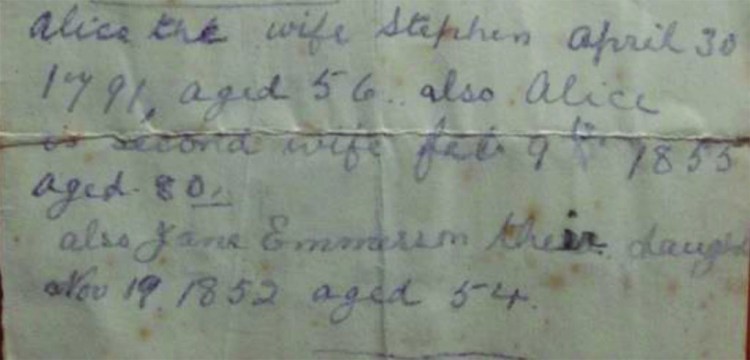 Alice the wife Stephen April 30
1791, aged 56.. also Alice
is second wife feb 9th 1855
aged 80.
also Jane Emmerson their daugh
Nov 19 1852 aged 54.